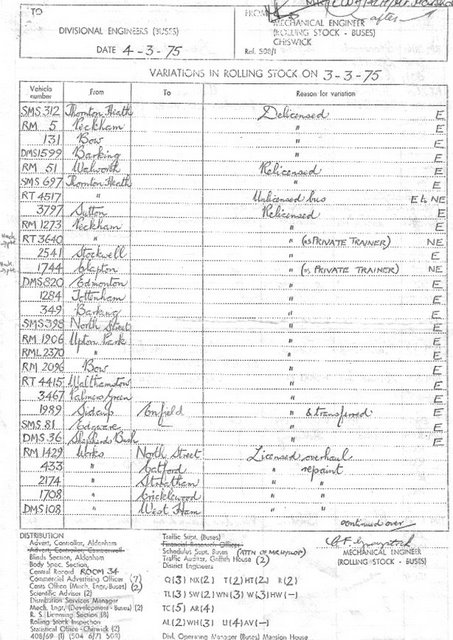 TO
DIVISIONAL ENGINEERS (BUSES)
DATE 4-3-75
FROM
MECHANICAL ENGINEER
(ROLLING STOCK - BUSES)
CHISWICK
Ref. 508/1
after
VARIATIONS IN ROLLING STOCK ON 3-3-75
Vehicle number From To Reason for variation
SMS 312 Thornton Heath Delicensed E
RM 5 Peckham " E
131 Bow " E
DMS 1599 Barking " E
RM 51 Walworth Relicensed E
SMS 697 Thornton Heath " E
RT 4517 " Unlicensed bus E to NE
3797 Sutton Relicensed E
RM 1273 Peckham " E
RT 3640 " " (as PRIVATE TRAINER) NE
2541 Stockwell " E
1744 Clapton " (as PRIVATE TRAINER) NE
DMS 820 Edmonton " E
1284 Tottenham " E
349 Barking " E
SMS 398 North Street " E
RM 1906 Upton Park " E
RML 2370 " " E
RM 2096 Bow " E
RT 4415 Walthamstow " E
3467 Palmers Green " E
1989 Sidcup Enfield " & transferred E
SMS 81 Edgware " E
DMS 36 Shepherds Bush " E
RM 1429 Works North Street Licensed overhaul E
433 " Catford " repaint E
2174 " Streatham " " E
1708 " Cricklewood " " E
DMS 108 " West Ham " " E
continued over
MECHANICAL ENGINEER
(ROLLING STOCK - BUSES)
DISTRIBUTION
Advert. Controller, Aldenham
Blinds Section, Aldenham
Body Spec. Section,
Central Record ROOM 34
Commercial Advertising Officer (7)
Costs Office (Mech. Engr. Buses) (2)
Scientific Adviser (2)
Distribution Services Manager
Mech. Engr. (Development - Buses) (2)
R. S. Licensing Section (8)
Rolling Stock Inspector
Statistical Office - Chiswick (2)
Traffic Supt. (Buses)
Financial Research Officer
Schedules Supt. Buses
Traffic Auditor, Griffith House (2)
District Engineers
Q(3) NX(2) T(2) HT(2) R(2)
TL(3) SW(2) WN(3) W(3) HW(-)
TC(5) AR(4)
AL(2) WH(3) U(4) AV(-)
Divl. Operating Manager (Buses) Mansion House